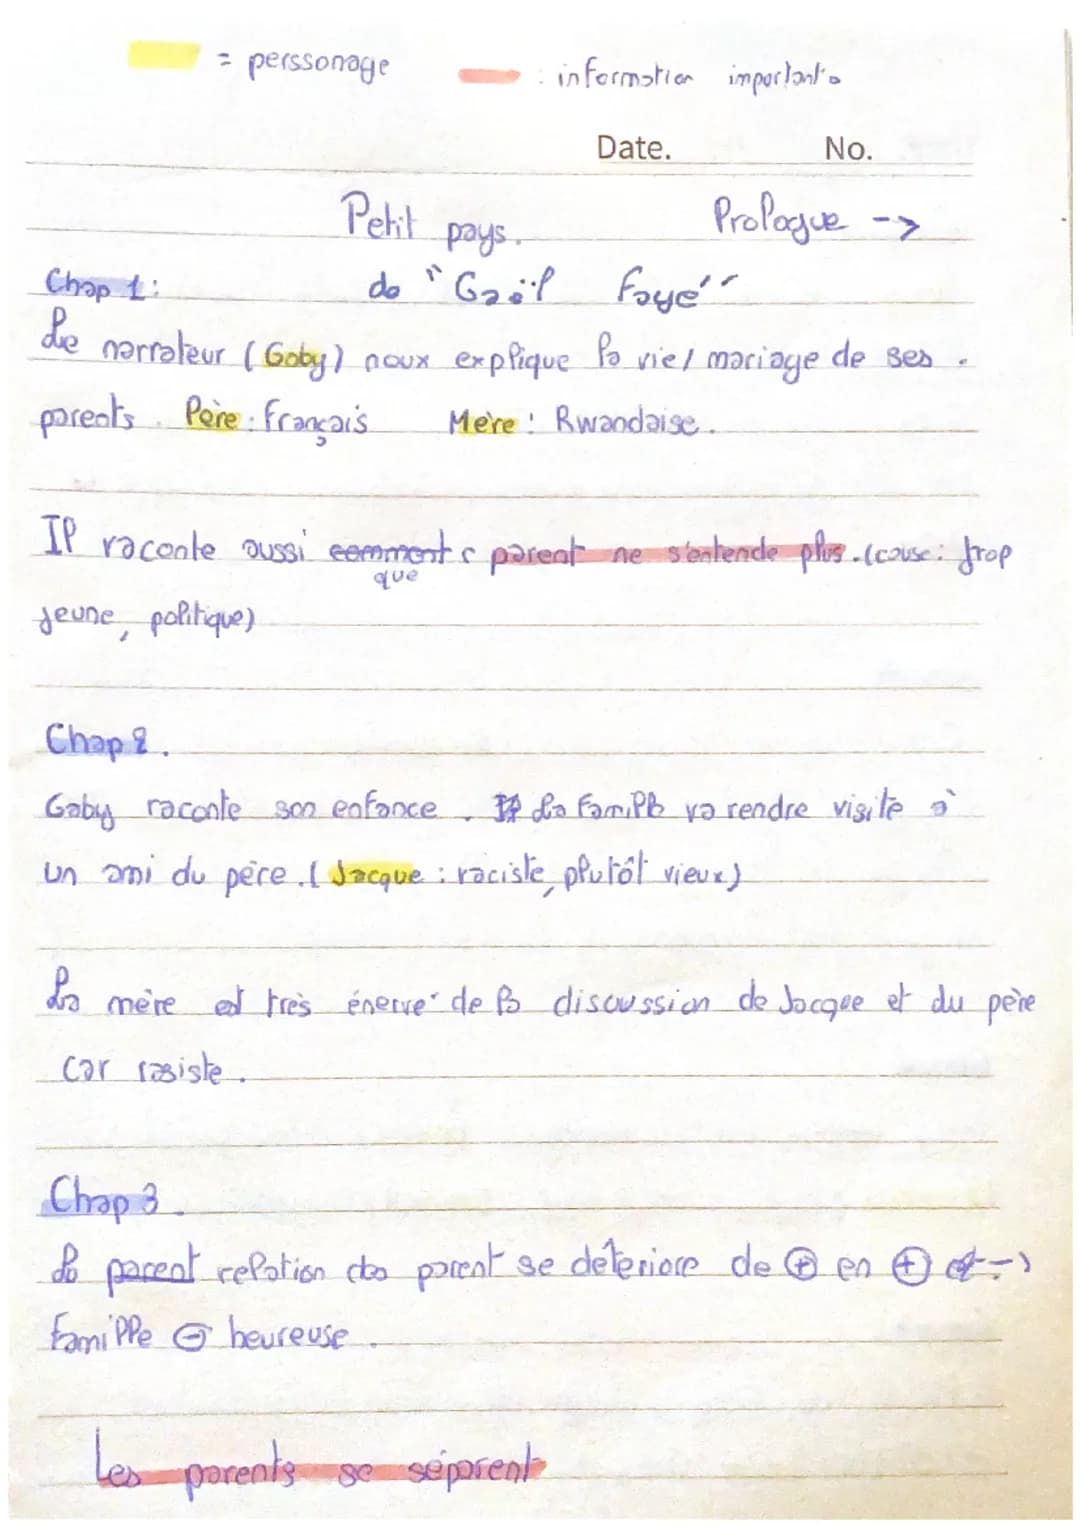 = perssonage : information important.
Date. No.
Petit pays. Prologue ->
Chap 1: de "Gaël Faye"
Le narrateur (Gaby) noux explique la vie / mariage de ses.
parents. Père : Français Mère : Rwandaise.
Il raconte aussi comment c parent ne s'entende plus. (cause : trop
que
jeune, politique)
Chap 2.
Gaby raconte son enfance. La famille va rendre visite à
un ami du père. ( Jacque : raciste, plutôt vieux)
La mère est très énervé de la discussion de Jacque et du père
car rasiste.
Chap 3.
La parent relation des parent se deteriore de + en + et ->
famille - heureuse.
Les parents se séparent